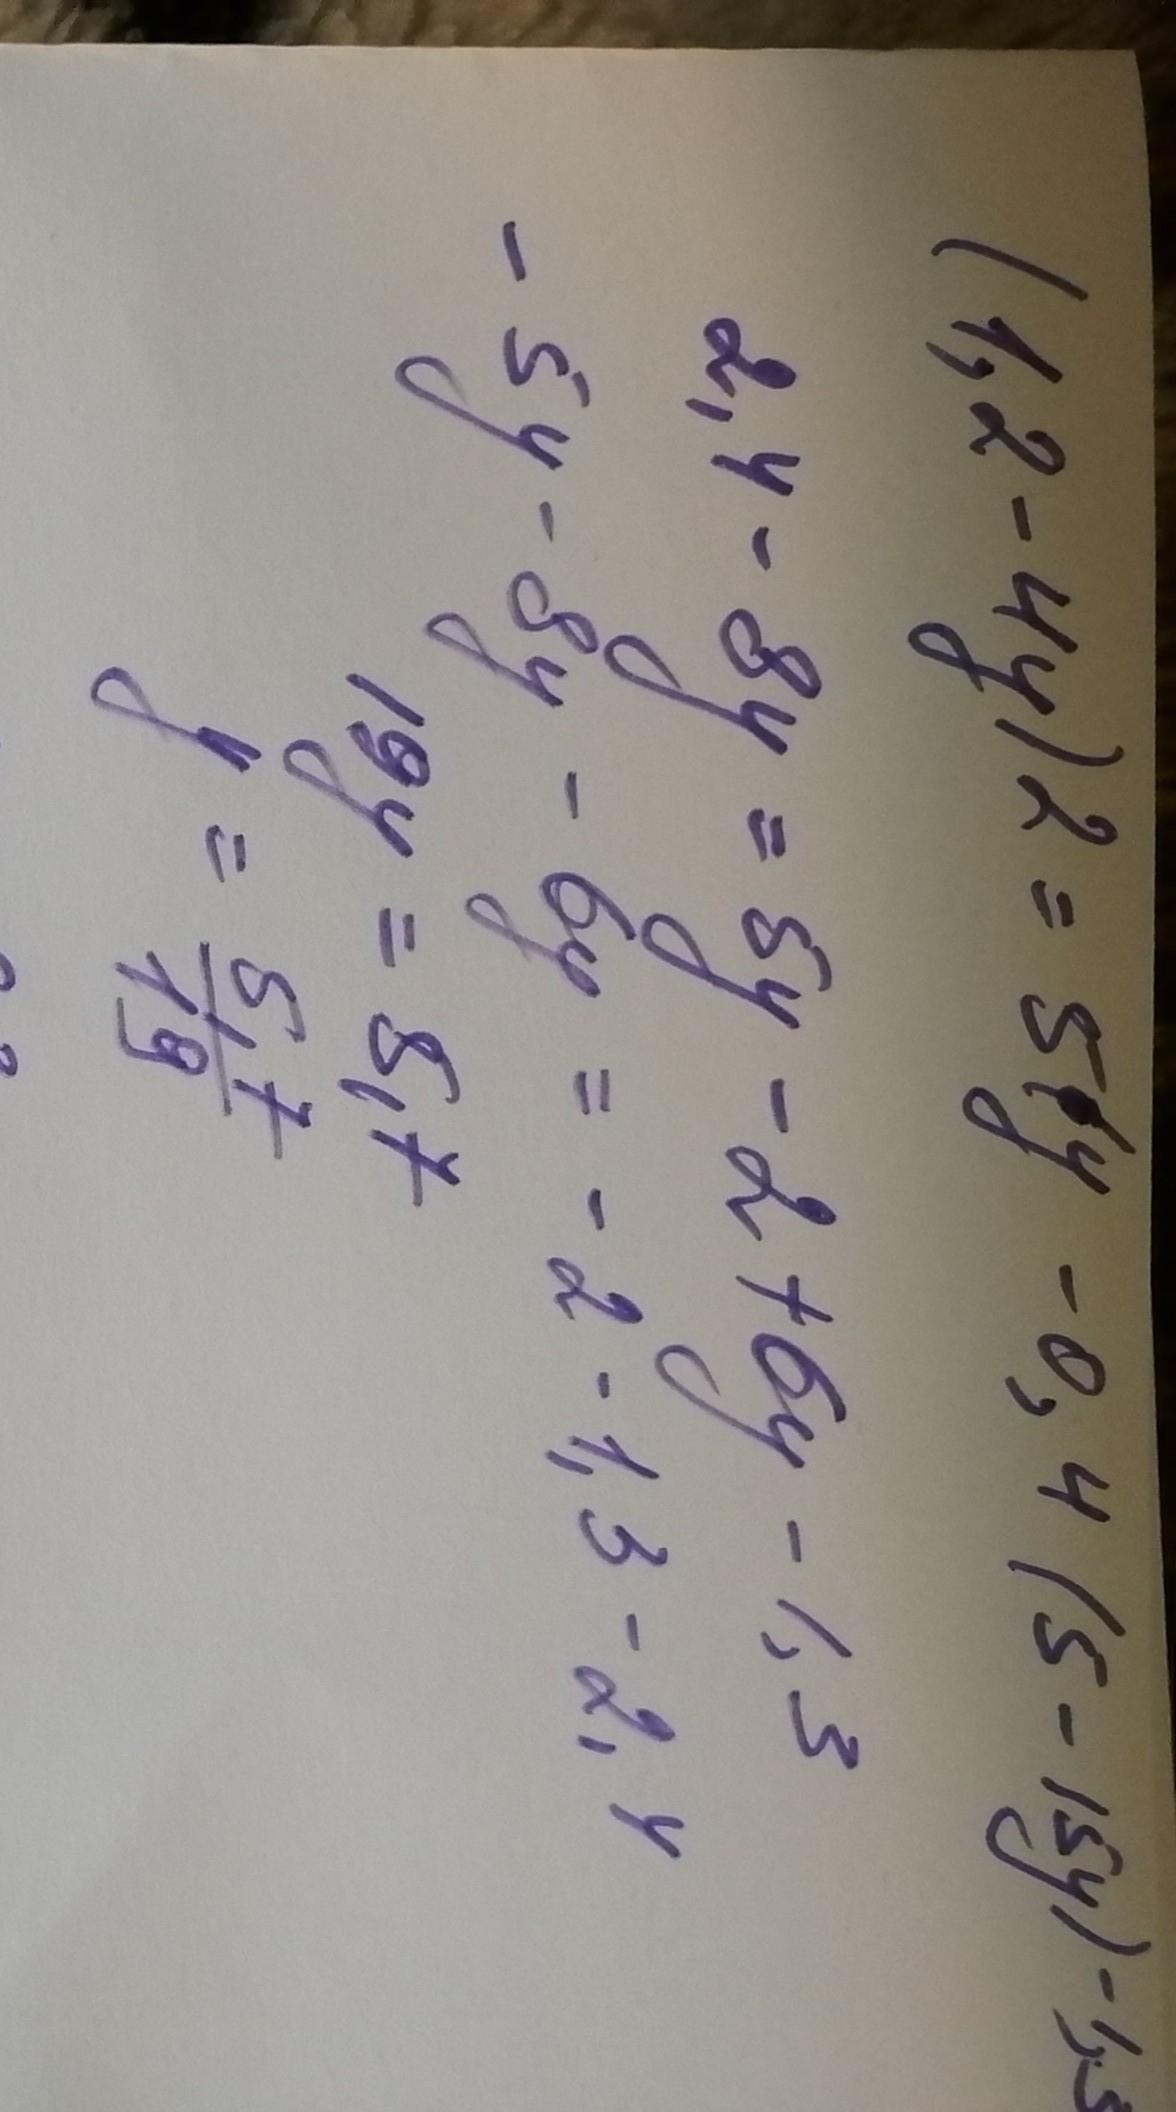 (1,2-4y)2=5y-0,4(5-15y)-1,3
2,4-8y=5y-2+6y-1,3
-5y-8y-6y=-2-1,3-2,4
19y=5,7
y=5,7/19